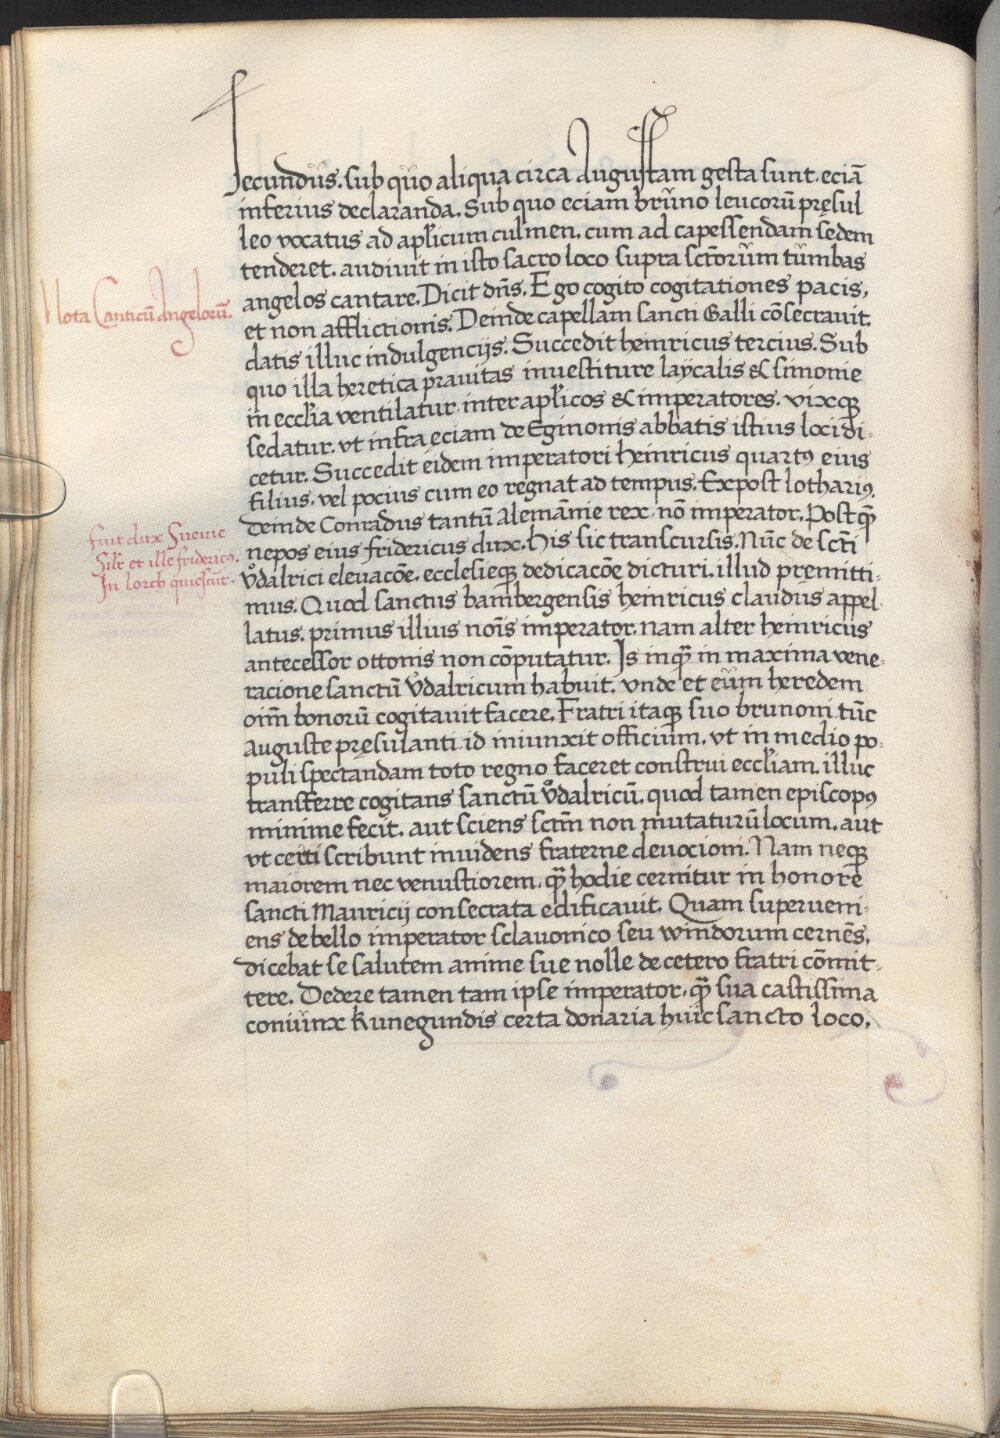 secundus. sub quo aliqua circa Augustam gesta sunt. eciā
inferius declaranda. Sub quo eciam brūno leucorū pręsul
leo vocatus ad aplicum culmen. cum ad capessendam sedem
tenderet. audiuit in isto sacro loco supra sctorum tumbas
angelos cantare. Dicit dn̄s. Ego cogito cogitationes pacis,
Nota Canticū Angelorū.
et non afflictionis. Deinde capellam sancti Galli cōsecrauit.
datis illuc indulgencijs. Succedit heinricus tercius. Sub
quo illa heretica prauitas inuestiture laycalis & simonie
in eccl̄ia ventilatur. inter apl̄icos & imperatores. vixqȝ
sedatur. vt infra eciam de Eginonis abbatis istius loci di-
cetur. Succedit eidem imperatori heinricus quartꝰ eius
filius. vel pocius cum eo regnat ad tempus. Expost lothariꝰ.
deinde Conradus tantū Alemānie rex. nō imperator. Postqȝ̄
fuit dux Sueuie
Silr et ille fridericꝰ.
In lorch quiescūt.
nepos eius fridericus dux. His sic transcursis. Nūc de scti
vͦdalrici eleuacōe. ecclesieqȝ dedicacōe dicturi. illud pręmitti-
mus. Quod sanctus bambergensis heinricus claudus appel-
latus. primus illius nōis imperator. nam alter heinricus
antecessor ottonis non cōputatur. Is inqȝ̄ in maxima vene-
racione sanctū vͦdalricum habuit. vnde et eum heredem
oīm bonorū cogitauit facere. Fratri itaqȝ suo brunoni tūc
Auguste pręsulanti id iniunxit officium. vt in medio po-
puli spectandam toto regno faceret construi eccl̄iam. illuc
transferre cogitans sanctū vͦdalricū. quod tamen episcopꝰ
minime fecit. aut sciens sctm̄ non mutaturū locum. aut
vt certi scribunt inuidens fraterne deuocioni. Nam neqȝ
maiorem nec venustiorem. qȝ̄ hodie cernitur in honorē
sancti Mauricij consecrata edificauit. Quam superueni-
ens de bello imperator sclauonico seu windorum cernēs.
dicebat se salutem anime sue nolle de cetero fratri cōmit-
tere. Dedere tamen tam ipse imperator. qȝ̄ sua castissima
coniunx Kunegundis certa donaria huic sancto loco.